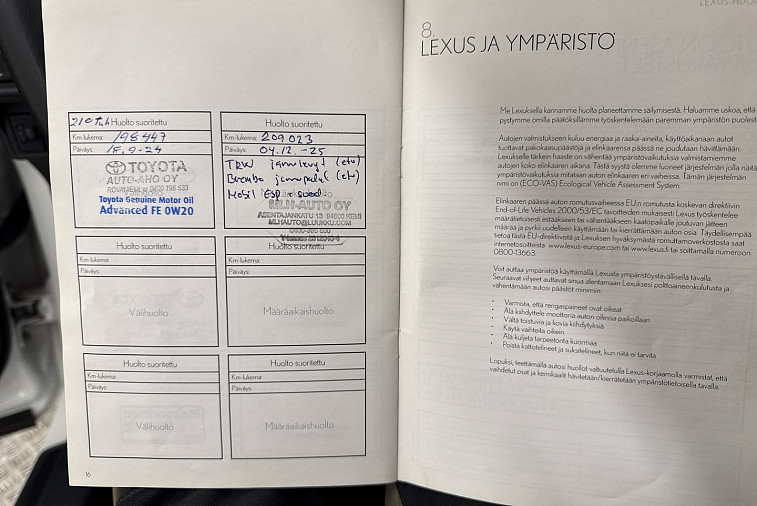 210 t.h Huolto suoritettu
Km-lukema: 198447
Päiväys: 18.9-24
TOYOTA
AUTO-AHO OY
ROVANIEMI
Toyota Genuine Motor Oil
Advanced FE 0W20
Huolto suoritettu
Km-lukema: 209 023
Päiväys: 04.12.-25
TRW jarrulevyt (etu)
Brembo jarrupalat (etu)
Mobil ESP
Määräaikaishuolto
MLH-AUTO OY
ASENTAJANKATU 13 94600 KEMI
MLHAUTO@LUUKKU.COM
Huolto suoritettu
Km-lukema:
Päiväys:
Välihuolto
Huolto suoritettu
Km-lukema:
Päiväys:
Määräaikaishuolto
Huolto suoritettu
Km-lukema:
Päiväys:
Välihuolto
Huolto suoritettu
Km-lukema:
Päiväys:
Määräaikaishuolto
16
8.
LEXUS JA YMPÄRISTÖ
Me Lexuksella kannamme huolta planeettamme säilymisestä. Haluamme uskoa, että
pystymme omilla päätöksillämme työskentelemään paremman ympäristön puolesta
Autojen valmistukseen kuluu energiaa ja raaka-aineita, käyttöaikanaan autot
tuottavat pakokaasupäästöjä ja elinkaarensa päässä ne joudutaan hävittämään.
Lexukselle tärkein haaste on vähentää ympäristövaikutuksia valmistamiemme
autojen koko elinkaaren aikana. Tästä syystä olemme luoneet järjestelmän jolla näitä
ympäristövaikutuksia mitataan auton elinkaaren eri vaiheissa. Tämän järjestelmän
nimi on (ECO-VAS) Ecological Vehicle Assessment System.
Elinkaaren päässä auton romutusvaiheessa EU:n romutusta koskevan direktiivin
End-of-Life Vehicles 2000/53/EC tavoitteiden mukaisesti Lexus työskentelee
määrätietoisesti estääkseen tai vähentääkseen kaatopaikalle joutuvan jätteen
määrää ja pyrkii uudelleen käyttämään tai kierrättämään auton osia. Täydellisempää
tietoa tästä EU-direktiivistä ja Lexuksen hyväksymästä romuttamoverkostosta saat
internetosoitteista www.lexus-europe.com tai www.lexus.fi tai soittamalla numeroon
0800-13663.
Voit auttaa ympäristöä käyttämällä Lexusta ympäristöystävällisellä tavalla.
Seuraavat vihjeet auttavat sinua alentamaan Lexuksesi polttoaineenkulutusta ja
vähentämään autosi päästöt minimiin:
• Varmista, että rengaspaineet ovat oikeat
• Älä käyttele moottoria auton ollessa paikoillaan
• Vältä toistuvia ja kovia kiihdytyksiä
• Käytä vaihteita oikein
• Älä kuljeta tarpeetonta kuormaa
• Poista kattotelineet ja suksitelineet, kun niitä ei tarvita
Lopuksi, teettämällä autosi huollot valtuutetulla Lexus-korjaamolla varmistat, että
vaihdetut osat ja kemikaalit hävitetään/kierrätetään ympäristötietoisella tavalla.